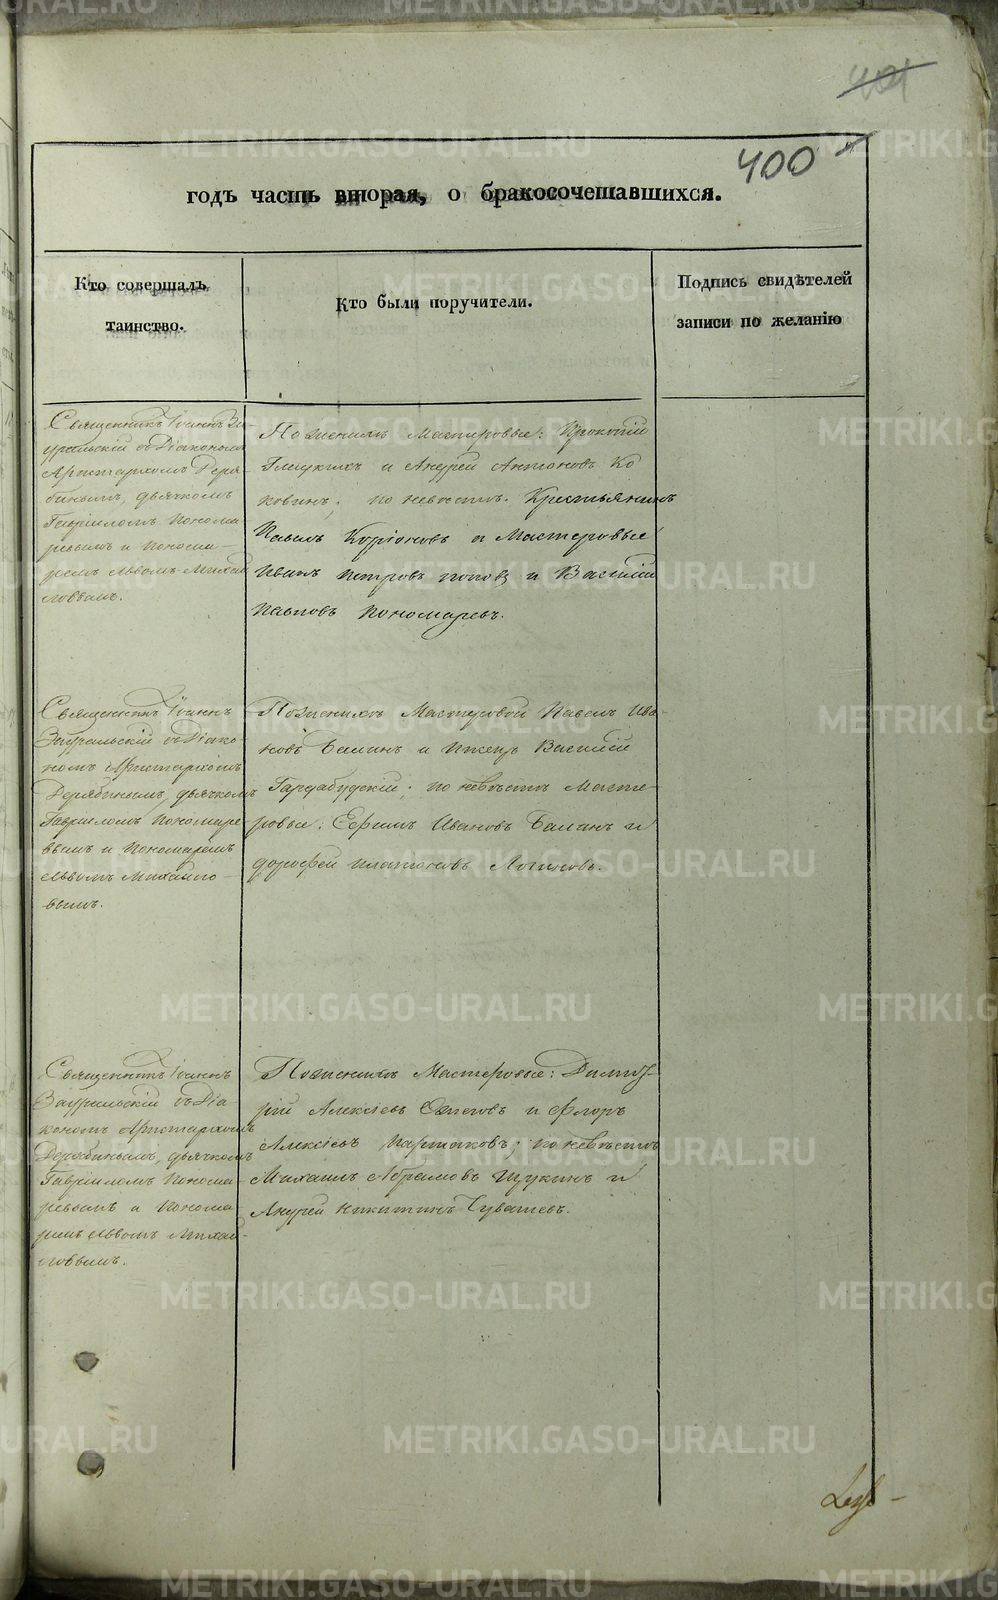 401
400
годъ часть вторая, о бракосочетавшихся.
Кто совершалъ
таинство.
Кто были поручители.
Подпись свидѣтелей
записи по желанію
Священникъ Іоаннъ За
уральскій съ Діакономъ
Аристархомъ Деря-
бинымъ, дьячкомъ
Гавріиломъ Понома
ревымъ и понома-
ремъ Львомъ Михай
ловымъ.
По женихѣ Мастеровые: Прокопій
и Андрей Антоновъ Ко
ковинъ; по невѣстѣ. Крестьянинъ
Павелъ и Мастеровые
Иванъ Петровъ Поповъ и Василій
Павловъ Пономаревъ.
Священникъ Іоаннъ
Зауральскій съ Діако-
номъ Аристархомъ
Дерябинымъ, дьячкомъ
Гавріиломъ Пономаре-
вымъ и Пономаремъ
Львомъ Михайло-
вымъ.
По женихѣ Мастеровой Павелъ Ива-
новъ Балинъ и Василій
по невѣстѣ Масте-
ровые. Ефимъ Ивановъ Балинъ и
Дорофей Платоновъ Логиновъ.
Священникъ Іоаннъ
Зауральскій съ Діа-
кономъ Аристархомъ
Дерябинымъ, дьячкомъ
Гавріиломъ Понома-
ревымъ и Понома-
ремъ Львомъ Михай-
ловымъ.
По женихѣ Мастеровые: Димит-
рій Алексѣевъ и Флоръ
Алексѣевъ по невѣстѣ
Михаилъ Абрамовъ Щукинъ и
Андрей Никитинъ Чувашевъ.
METRIKI.GASO-URAL.RU